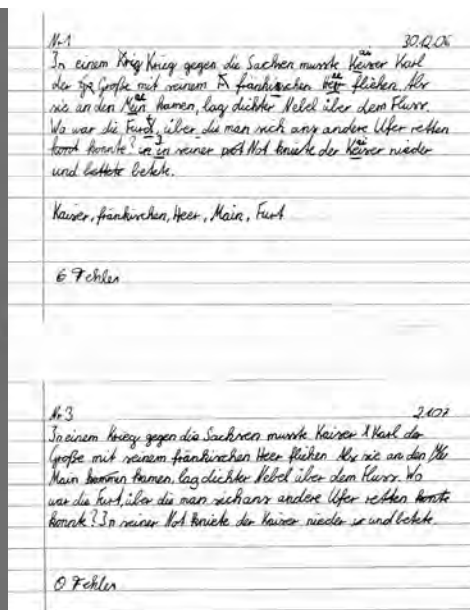 Nr. 1 30.12.06
In einem Krieg gegen die Sachsen musste Keiser Karl
der Große mit seinem fränkischen Heer fliehen. Als
sie an den Mein kamen, lag dichter Nebel über dem Fluss.
Wo war die Furt, über die man sich ans andere Ufer retten
konnte? in In seiner Not kniete der Keiser nieder
und bettete betete.
Kaiser, fränkischen, Heer, Main, Furt
6 Fehler
Nr. 3 2.1.07
In einem Krieg gegen die Sachsen musste Kaiser Karl der
Große mit seinem fränkischen Heer fliehen. Als sie an den
Main kamen, lag dichter Nebel über dem Fluss. Wo
war die Furt, über die man sich ans andere Ufer retten konte
konnte? In seiner Not kniete der Kaiser nieder und betete.
0 Fehler